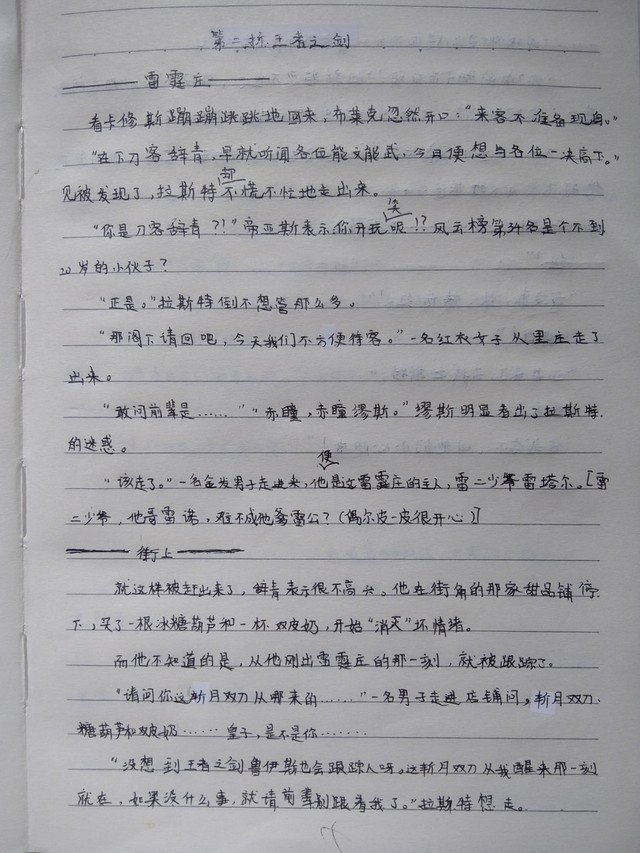 第二折王者之剑
——雷霆庄——
看卡修斯蹦蹦跳跳地回来，布莱克忽然开口：“来客不准备现身。”
“在下刀客辞青，早就听闻各位能文能武，今日便想与各位一决高下。”
见被发现了，拉斯特却不慌不忙地走出来。
“你是刀客辞青？！”帝亚斯表示你开玩笑呢！？风云榜第34名是个不到
20岁的小伙子？
“正是。”拉斯特倒不想管那么多。
“那阁下请回吧，今天我们不方便待客。”一名红衣女子从里庄走了
出来。
“敢问前辈是……”“赤瞳，赤瞳缪斯。”缪斯明显看出了拉斯特
的迷惑。
“该走了。”一名金发男子走进来，他便是这雷霆庄的主人，雷二少爷雷塔尔。[雷
二少爷，他哥雷诺，难不成他爹雷公？（偶尔皮一皮很开心）]
——街上——
就这样被赶出来了，辞青表示很不高兴，他在街角的那家甜品铺停
下，买了一根冰糖葫芦和一杯双皮奶，开始“消灭”坏情绪。
而他不知道的是，从他刚出雷霆庄的那一刻，就被跟踪了。
“请问你这斩月双刀从哪来的……”一名男子走进店铺问，斩月双刀.
糖葫芦和双皮奶……皇子，是不是你……
“没想到王者之剑鲁伊斯也会跟踪人呀。这斩月双刀从我醒来那一刻
就在，如果没什么事，就请前辈别跟着我了。”拉斯特想走。